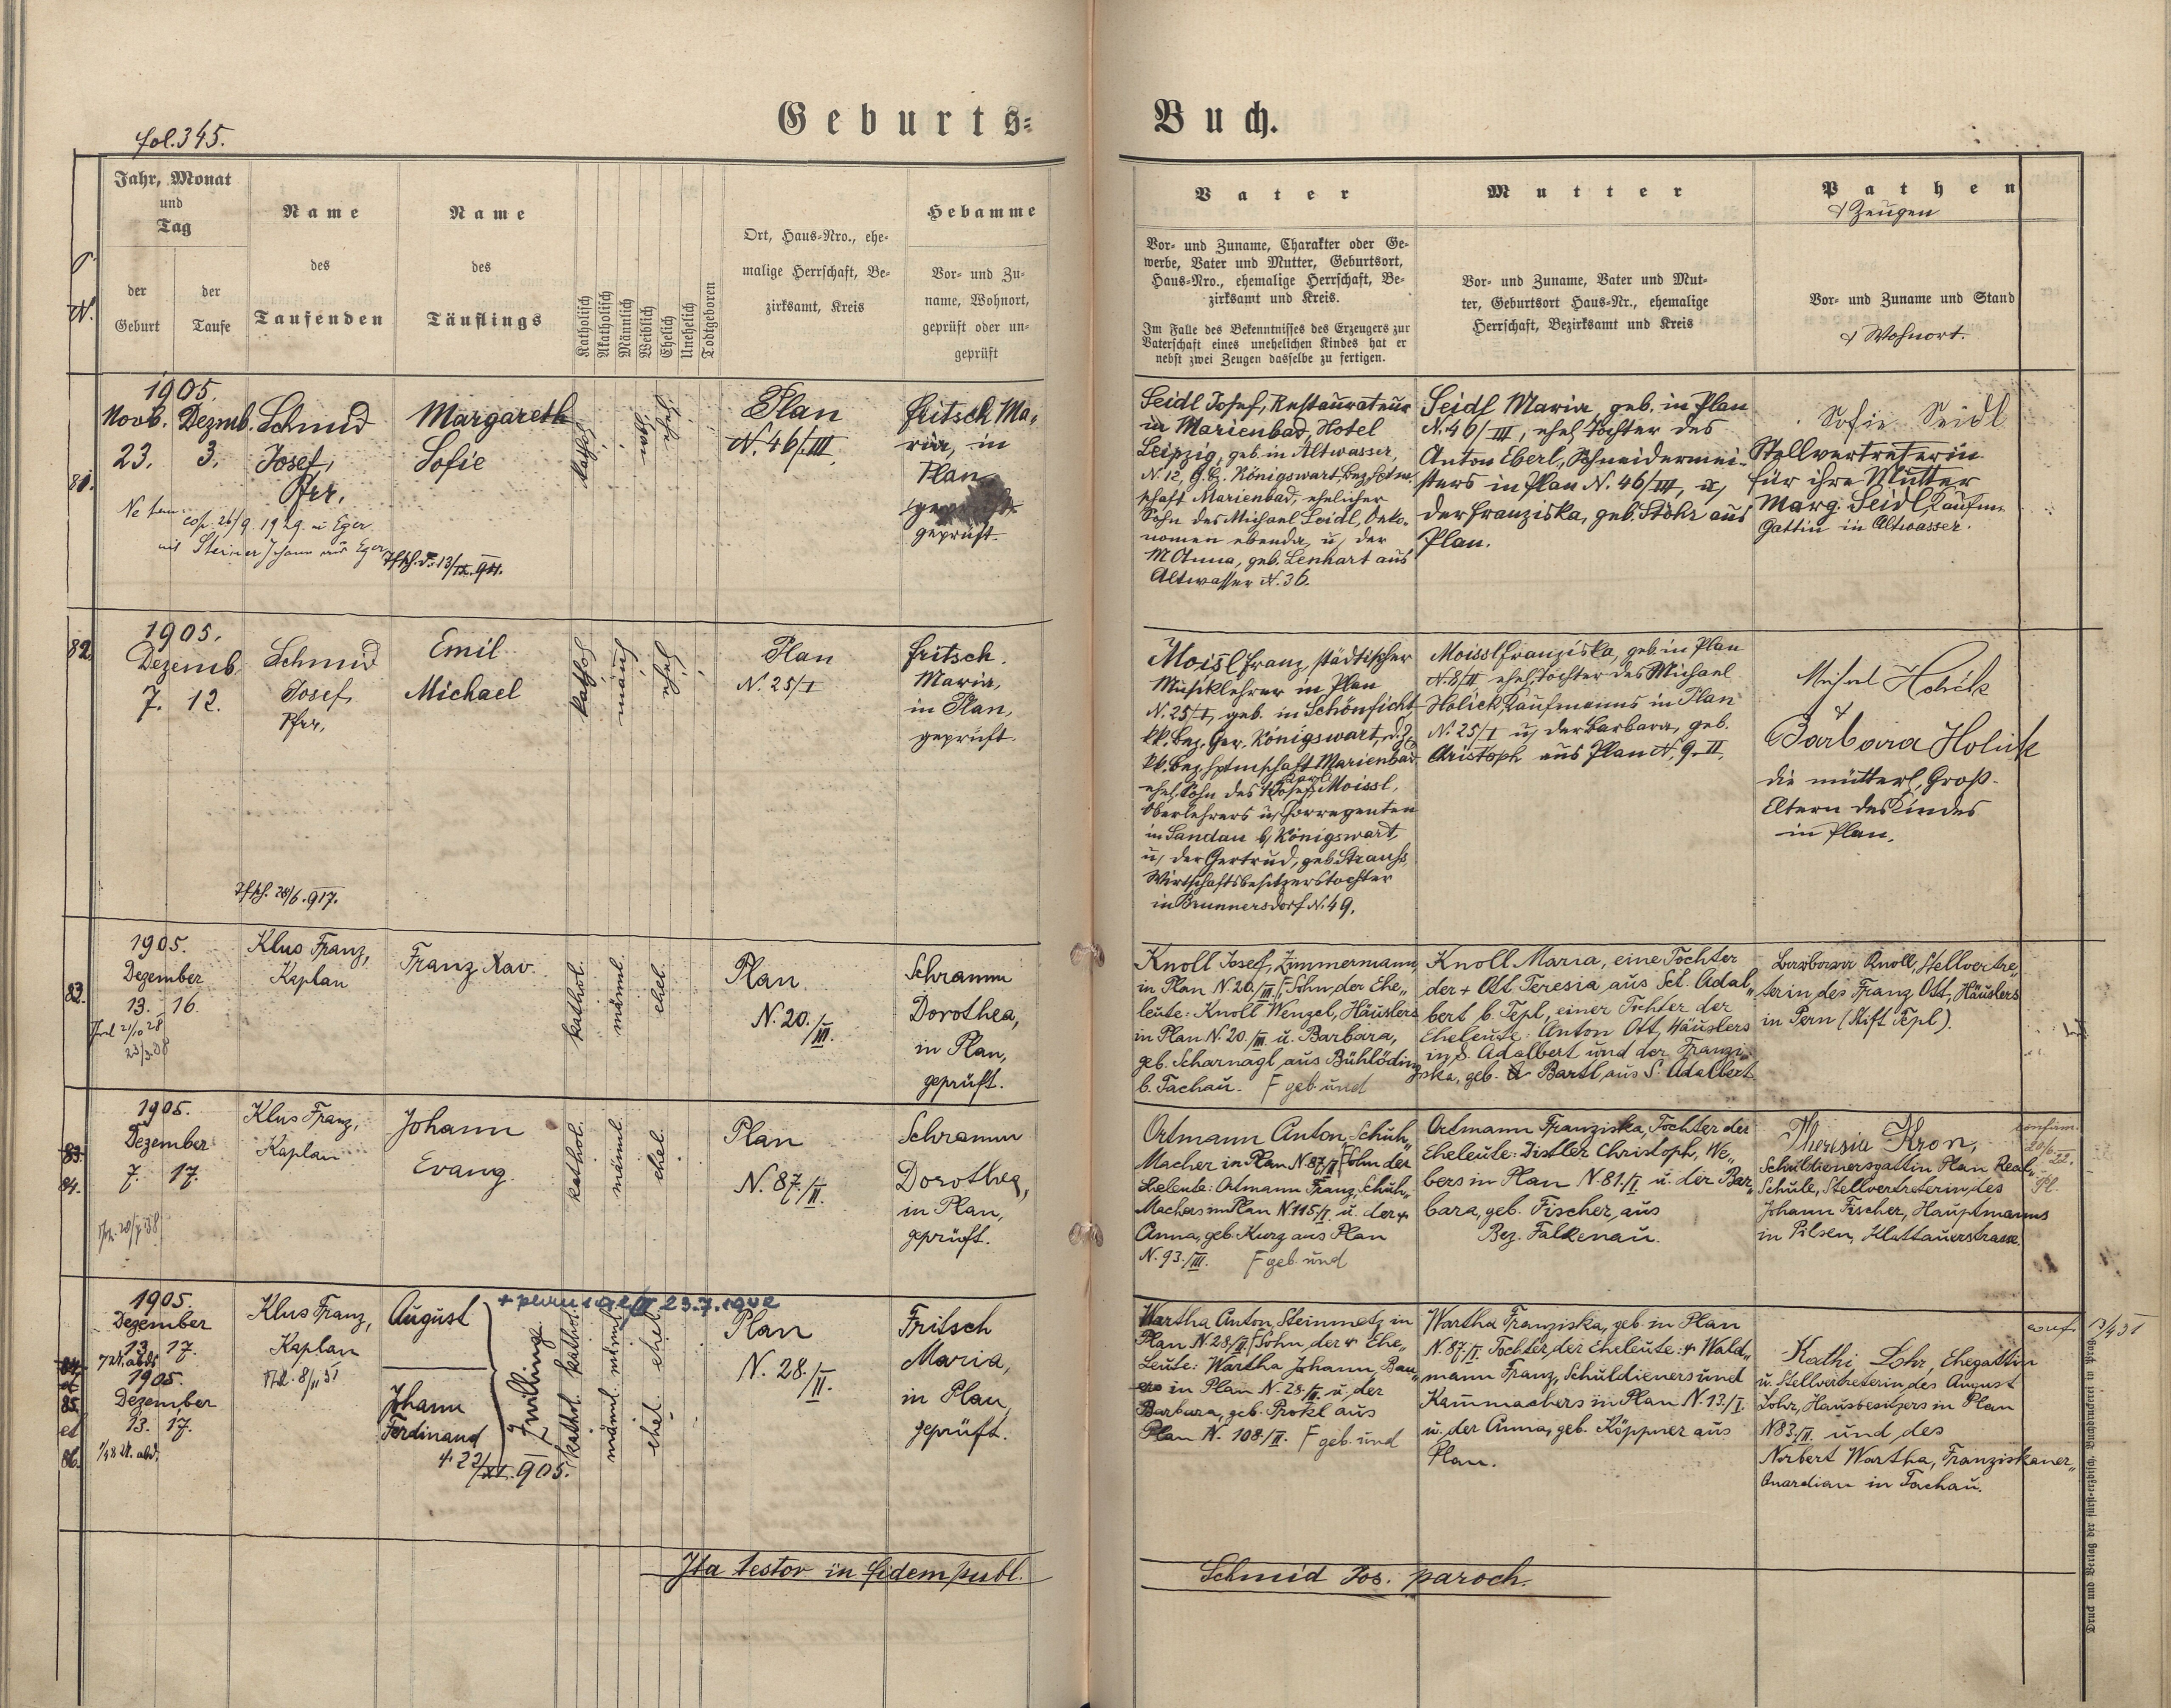 Geburts=
Buch.
fol. 345.
Jahr, Monat
und
Tag
der
Geburt
der
Taufe
Name
des
Taufenden
Name
des
Täuflings
Katholisch
Akatholisch
Männlich
Weiblich
Ehelich
Unehelich
Todtgeboren
Ort, Haus=Nro., ehe=
malige Herrschaft, Be=
zirksamt, Kreis
Hebamme
Vor= und Zu=
name, Wohnort,
geprüft oder un=
geprüft
Vater
Vor= und Zuname, Charakter oder Ge=
werbe, Vater und Mutter, Geburtsort,
Haus=Nro., ehemalige Herrschaft, Be=
zirksamt und Kreis.
Im Falle des Bekenntnisses des Erzeugers zur
Vaterschaft eines unehelichen Kindes hat er
nebst zwei Zeugen dasselbe zu fertigen.
Mutter
Vor= und Zuname, Vater und Mut=
ter, Geburtsort Haus=Nr., ehemalige
Herrschaft, Bezirksamt und Kreis
Pathen
& Zeugen
Vor= und Zuname und Stand
& Wohnort.
81.
1905.
Novb. Dezmb.
23. 3.
Schmid
Josef,
Pfr.
cop. 26/9. 1929. in Eger
mit Steiner Johann aus Eger
Margareth
Sofie
kathol.
weibl.
ehel.
Plan
N. 46/III.
Fritsch Ma=
ria, in
Plan
geprüft.
Seidl Josef, Restaurateur
in Marienbad, Hotel
Leipzig, geb. in Altwasser,
N. 12, G.B. Königswart, Bez. Hptm=
schaft Marienbad, ehelicher
Sohn des Michael Seidl, Oeko=
nomen ebenda, u. der
M Anna, geb. Lenhart aus
Altwasser N. 36.
Seidl Maria, geb. in Plan
N. 46/III, ehel. Tochter des
Anton Eberl, Schneidermei=
sters in Plan N. 46/III, u.
der Franziska, geb. Stöhr aus
Plan.
Sofie Seidl
Stellvertreterin
für ihre Mutter
Marg. Seidl, Kaufm.
Gattin in Altwasser.
82.
1905.
Dezemb.
7. 12.
Schmid
Josef,
Pfr.
28/6. 917.
Emil
Michael
kathol.
männl.
ehel.
Plan
N. 25/I
Fritsch.
Maria,
in Plan,
geprüft.
Moisl Franz, städtischer
Musiklehrer in Plan
N. 25/I, geb. in Schönficht
kk. Bez. Ger. Königswart,
kk. Bez. Hptmschaft Marienbad
ehel. Sohn des Josef Karl Moissl,
Oberlehrers u. Chorregenten
in Sandau b. Königswart,
u. der Gertrud, geb. Strauss,
Wirtschaftsbesitzerstochter
in Brunnersdorf N. 49.
Moissl Franziska, geb. in Plan
N. 8/II ehel. Tochter des Michael
Holick, Kaufmanns in Plan
N. 25/I u. der Barbara, geb.
Christoph aus Plan N. 9. II.
Michael Holick
&
Barbara Holick
die mütterl. Groß=
Eltern des Kindes
in Plan.
83.
1905.
Dezember
13. 16.
Klus Franz,
Kaplan
Franz Xav.
kathol.
männl.
ehel.
Plan
N. 20./III.
Schramm
Dorothea,
in Plan,
geprüft.
Knoll Josef, Zimmermann,
in Plan N. 20./III. F Sohn der Ehe„
leute: Knoll Wenzel, Häuslers
in Plan N. 20./III. u. Barbara,
geb. Scharnagl aus Bühlöding
b. Tachau. F geb. und
Knoll Maria, eine Tochter
der + Ott Teresia aus Sct. Adal„
bert b. Tepl, einer Tchter der
Eheleute: Anton Ott, Häuslers
in S. Adalbert und der Franzi„
ska, geb. Bartl, aus S. Adalbert.
Barbara Knoll, Stellvertre„
terin des Franz Ott, Häuslers
in Pern (Stift Tepl).
83.
84.
1905.
Dezember
7. 17.
Klus Franz,
Kaplan
Johann
Evang.
kathol.
männl.
ehel.
Plan
N. 87./II.
Schramm
Dorothea,
in Plan,
geprüft.
Ortmann Anton, Schuh„
Macher in Plan N. 87/II F Sohn der
Eheleute: Ortmann Franz, Schuh„
Machers in Plan N. 115/I. u. der +
Anna, geb. Kurz aus Plan
N. 93./III. F geb. und
Ortmann Franziska, Tochter der
Eheleute: Distler Christoph, We„
bers in Plan N. 81./I u. der Bar„
bara, geb. Fischer, aus
Bez. Falkenau.
Theresia Kron,
Schuldienersgattin Plan Real„
Schule, Stellvertreterin des
Johann Fischer, Hauptmanns
in Pilsen, Klattauerstrasse.
confirm.
20/6. 22.
Pl.
84.
et
85.
et
86.
1905.
Dezember
13. 17.
7 U. abds
1905.
Dezember
13. 17.
1/4 8 U. abd.
Klus Franz,
Kaplan
August
Johann
Ferdinand
+ 22/XII. 905.
Zwillinge
kathol. kathol.
männl. männl.
ehel. ehel.
Plan
N. 28./II.
Fritsch
Maria,
in Plan,
geprüft.
Wartha Anton, Steinmetz in
Plan N. 28/II. F Sohn, der + Ehe„
Leute: Wartha Johann, Bau„
ers in Plan N. 28./II. u. der
Barbara, geb. Prokl aus
Plan N. 108./II. F geb. und
Wartha Franziska, geb. in Plan
N. 87./II. Tochter der Eheleute: + Wald„
mann Franz, Schuldieners und
Kammachers in Plan N. 13./I.
u. der Anna, geb. Köppner aus
Plan.
Kathi Lohr, Ehegattin
u. Stellvertreterin des August
Lohr, Hausbesitzers in Plan
N 83./II. und des
Norbert Wartha, Franziskaner„
Guardian in Tachau.
conf.
Ita testor in fidem publ.
Schmid Jos. paroch.
Druck und Verlag der fürst=erzbisch. Buchdruckerei in Prag